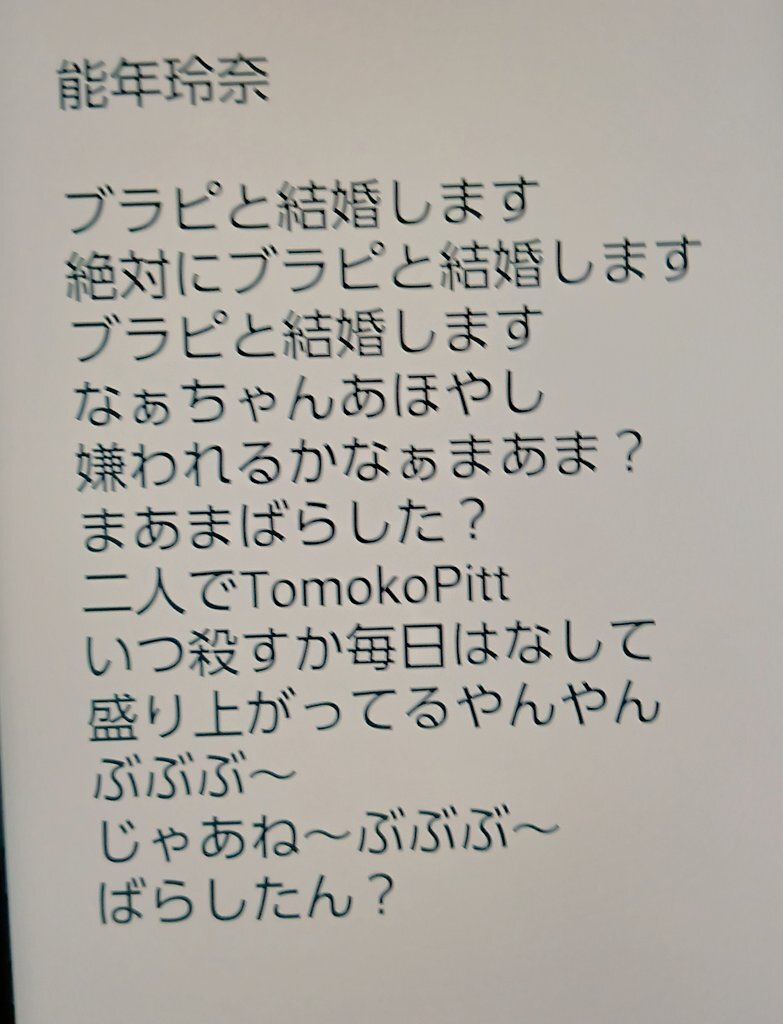 能年玲奈
ブラピと結婚します
絶対にブラピと結婚します
ブラピと結婚します
なぁちゃんあほやし
嫌われるかなぁまあま？
まあまばらした？
二人でTomokoPitt
いつ殺すか毎日はなして
盛り上がってるやんやん
ぶぶぶ～
じゃあね～ぶぶぶ～
ばらしたん？